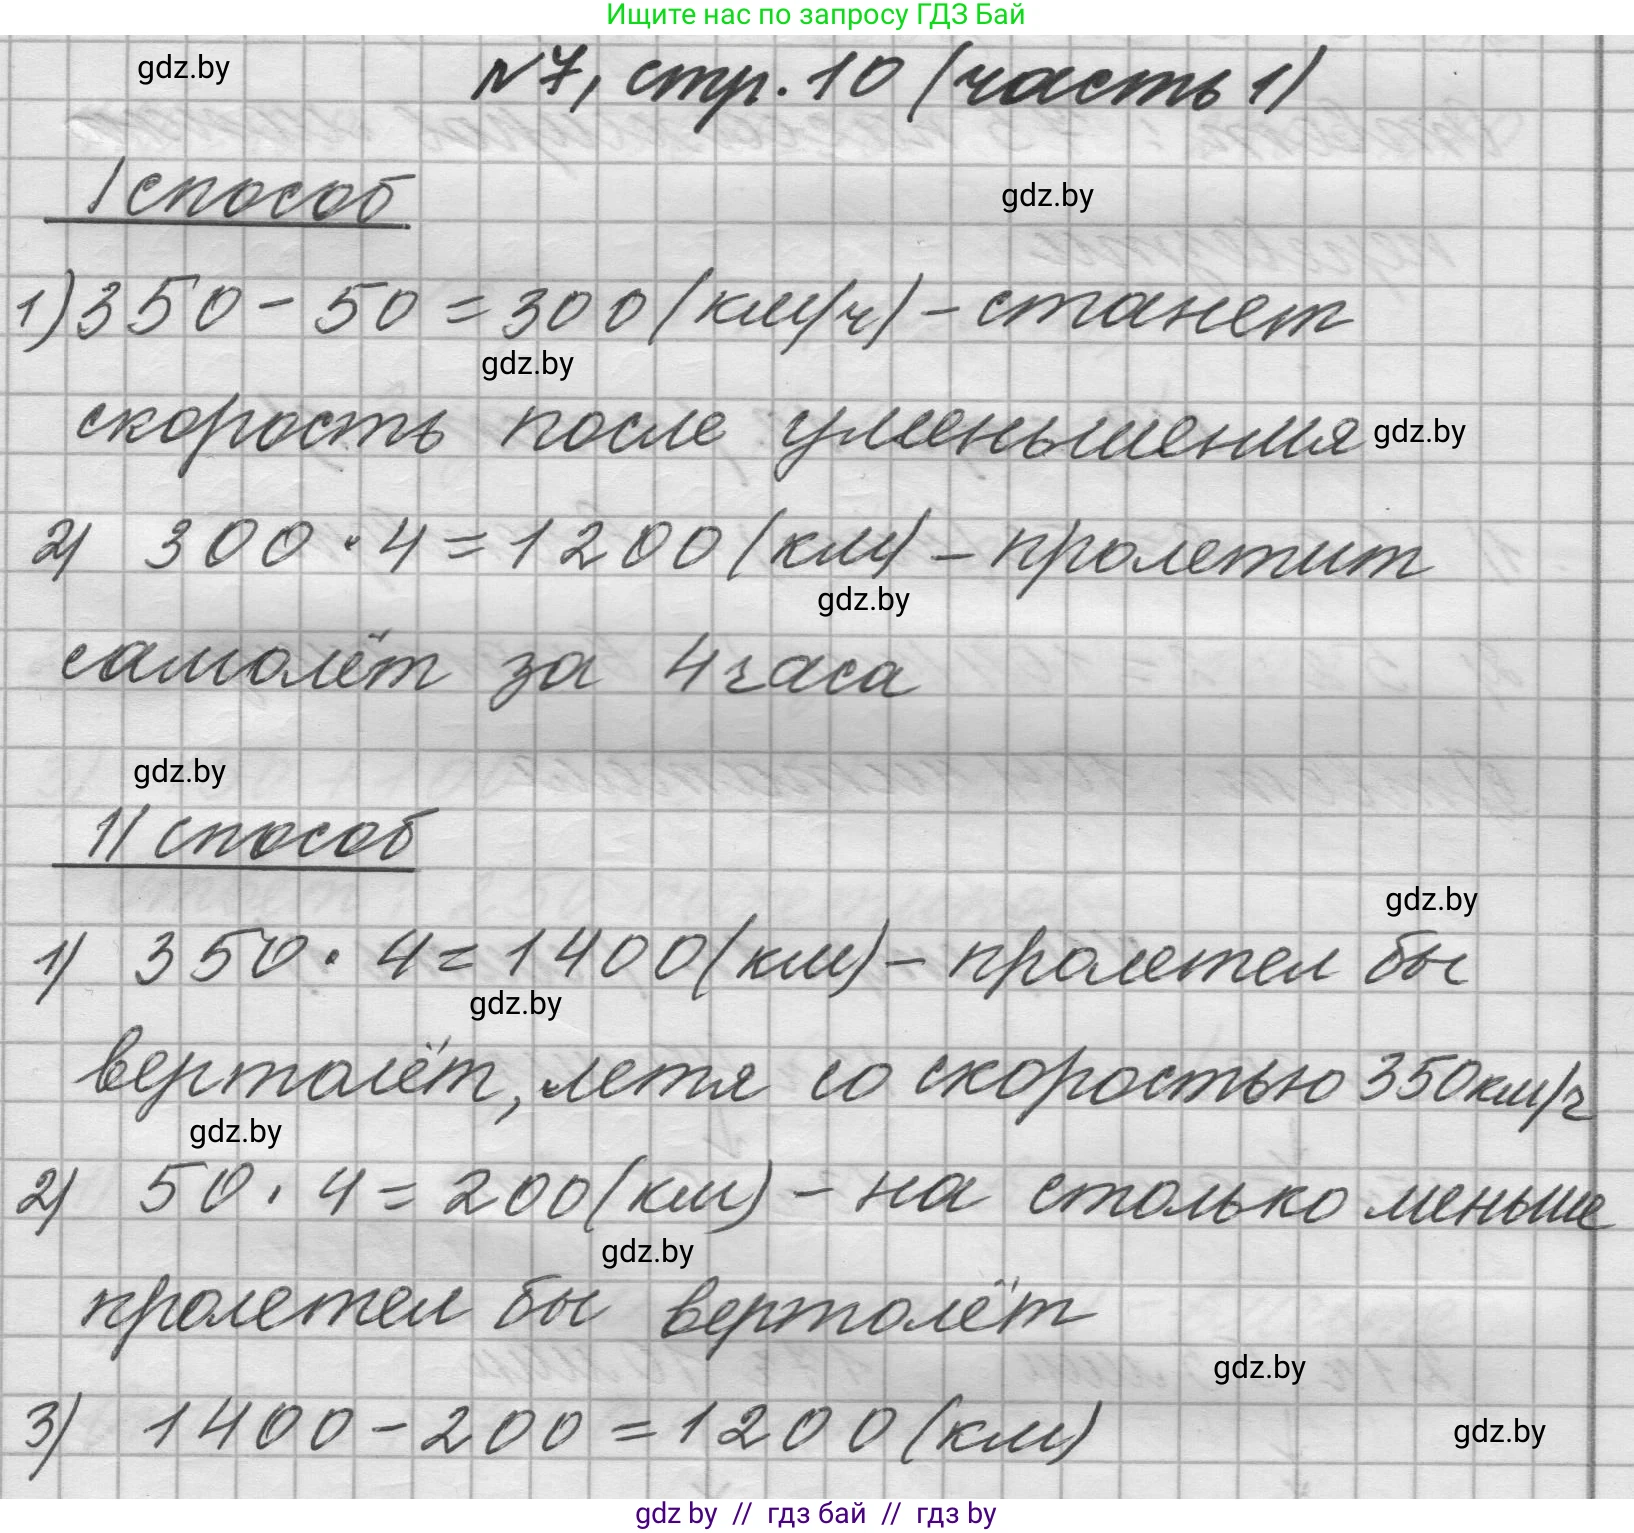 Ищите нас по запросу ГДЗ Бай
gdz.by
№7, стр. 10 (часть 1)
I способ
gdz.by
1) 350 - 50 = 300 (км/ч) - станет
gdz.by
скорость после уменьшения
gdz.by
2) 300 · 4 = 1200 (км) - пролетит
gdz.by
самолёт за 4 часа
gdz.by
II способ
gdz.by
1) 350 · 4 = 1400 (км) - пролетел бы
gdz.by
вертолёт, летя со скоростью 350км/ч
gdz.by
2) 50 · 4 = 200 (км) - на столько меньше
gdz.by
пролетел бы вертолёт
gdz.by
3) 1400 - 200 = 1200 (км)
gdz.by
gdz by // гдз бай // гдз by